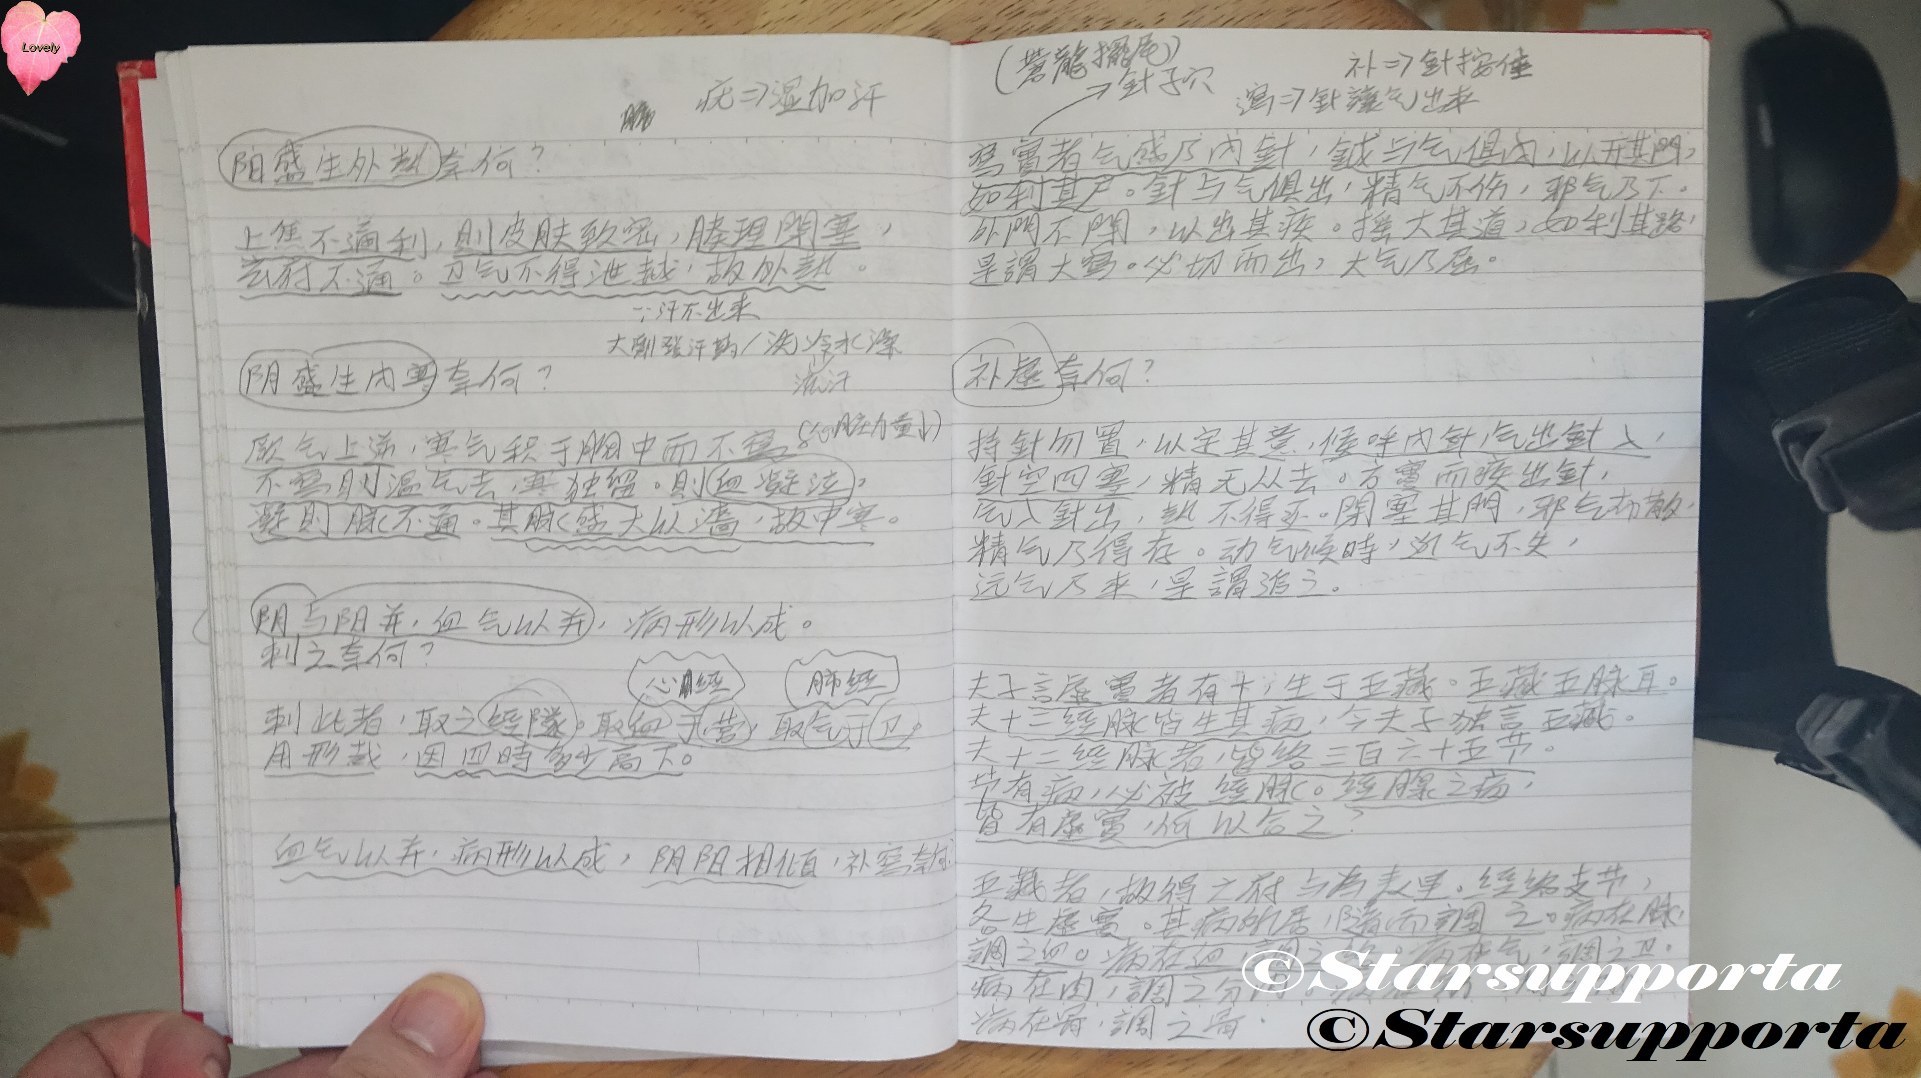 Lovely
疣=>湿加汗
阳盛生外热奈何？
上焦不通利，则皮肤致密，腠理閉塞，
玄府不通。卫气不得泄越，故外热。
∵汗不出来
洗冷水澡
流汗
阴盛生内寒奈何？
厥气上逆，寒气积于胸中而不寫。
不寫則温气去，寒独留。則血凝泣，
凝則脉不通。其脉盛大以濇，故中寒。
阴与阳并，血气以并，病形以成。
刺之奈何？
心經 肺經
刺此者，取之經隧。取血于营，取气于卫。
用形哉，因四時多少高下。
血气以并，病形以成，阴阳相倾，补寫奈何
(蒼龍擺尾)
→針子穴
补=>針按住
瀉=>針讓气出来
寫實者气盛乃内針，鍼与气俱内，以开其門，
如利其户。針与气俱出，精气不伤，邪气乃下。
外門不閉，以出其疾。摇大其道，如利其路，
是謂大寫。必切而出，大气乃屈。
补虚奈何？
持針勿置，以定其意，候呼内針，气出針入，
針空四塞，精无从去。方實而疾出針，
气入針出，熱不得还。閉塞其門，邪气布散，
精气乃得存。动气候時，近气不失，
远气乃来，是謂追之。
夫子言虚實者有十，生于五藏。五藏五脉耳。
夫十二經脉皆生其病，今夫子独言五藏。
夫十二經脉者，皆络三百六十五节。
节有病，必被經脉。經脉之病，
皆有虚實，何以合之？
五藏者，故得之府与為表里。經络支节，
各生虚實。其病所居，隨而調之。病在脉，
調之血。病在血，調之络。病在气，調之卫。
病在肉，調之分肉。
病在骨，調之骨。
©Starsupporta
©Starsupporta